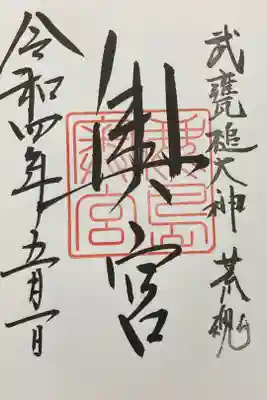 武甕槌大神 荒魂
奥宮
令和四年五月一日